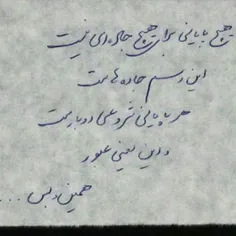 هیچ پایانی برای هیچ جاده‌ای نیست
این رسم جاده هاست
هر پایانی شروعی دوباره ست
و این یعنی عبور
همین و بس ...